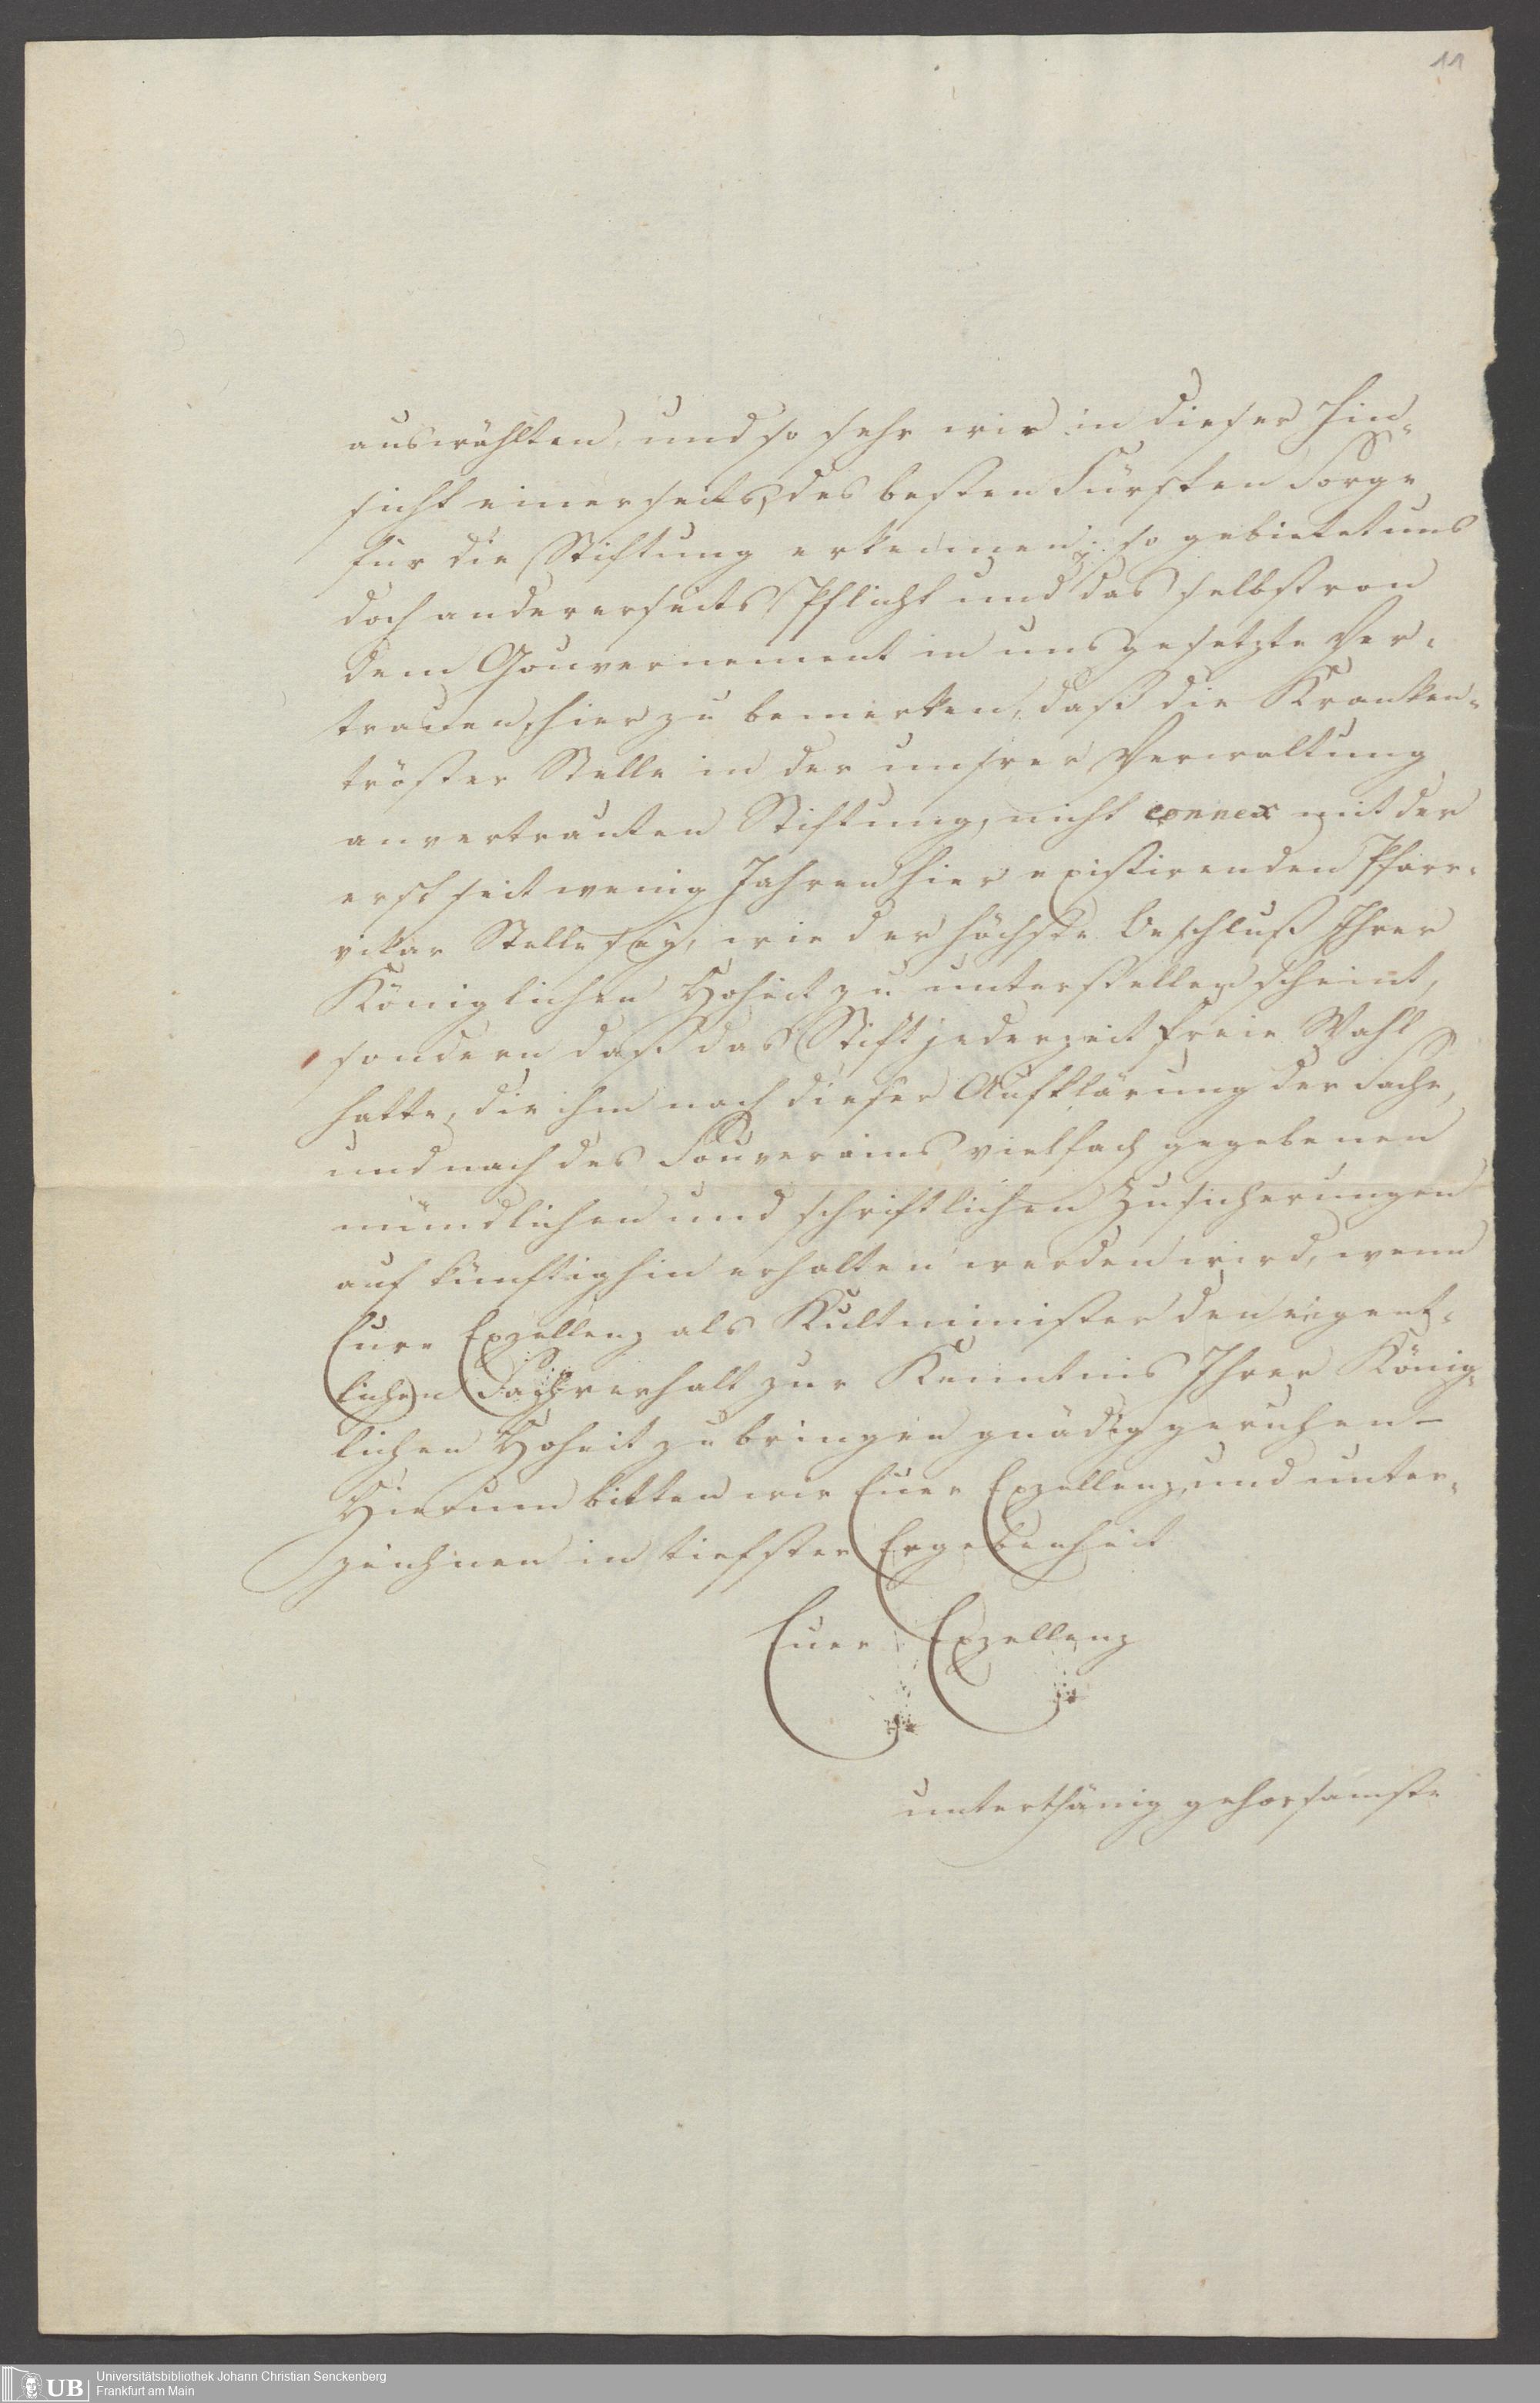 11
auswählten, und so sehr wir in dieser Hin-
sicht einerseits, des besten Fürsten Sorge
für die Stiftung erkennen; so gebietet uns
doch andererseits Pflicht und das selbst von
dem Gouvernement in uns gesetzte Ver-
trauen, hier zu bemerken, daß die Kranken-
tröster Stelle in der unsrer Verwaltung
anvertrauten Stiftung, nicht connex mit der
erst seit wenig Jahren hier existirenden Pfarr-
vikar Stelle sey, wie der höchste Beschluß Ihrer
Königlichen Hoheit zu unterstellen scheint,
sondern daß das Stift jederzeit freie Wahl
hatte, die ihm nach dieser Aufklärung der Sache,
und nach des Souverains vielfach gegebenen
mündlichen und schriftlichen Zusicherungen
auf künftighin erhalten werden wird, wenn
Eure Exzellenz als Kultminister den eigent-
lichen Sachverhalt zur Kenntnis Ihrer König-
lichen Hoheit zu bringen gnädig geruhen –
Hierum bitten wir Euer Exzellenz, und unter-
zeichnen in tiefster Ergebenheit
Euer Exzellenz
unterthänig gehorsamste
UB
Universitätsbibliothek Johann Christian Senckenberg
Frankfurt am Main